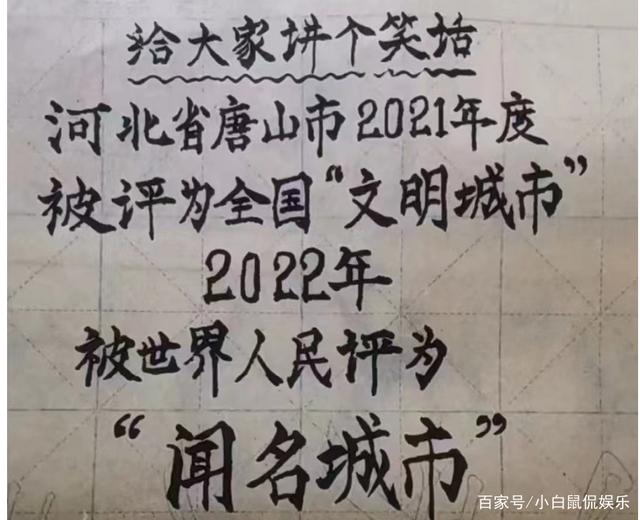 给大家讲个笑话
河北省唐山市2021年度
被评为全国“文明城市”
2022年
被世界人民评为
“闻名城市”
百家号/小白鼠侃娱乐